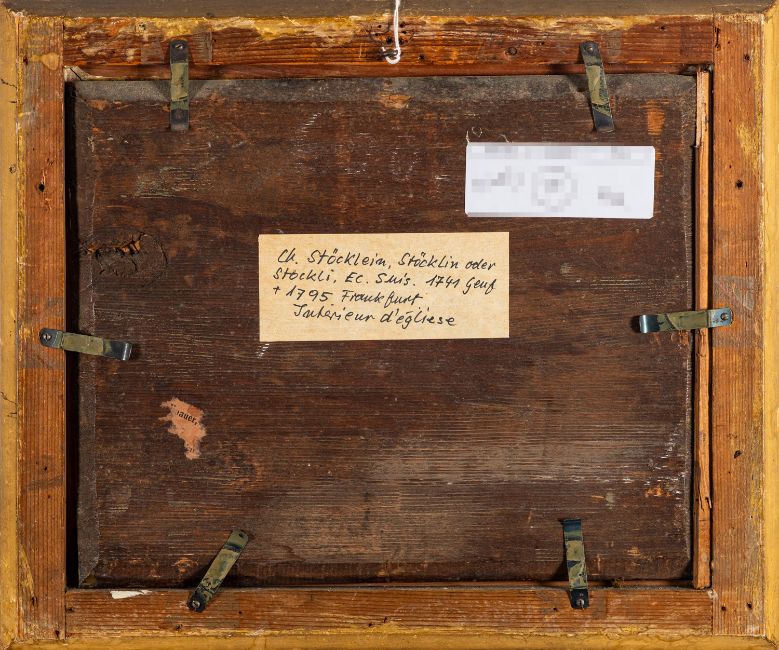 Ch. Stöcklein, Stöcklin oder
Stöckli, Ec. Suis. 1741 Genf
+ 1795 Frankfurt
Intérieur d'égliese
auer,